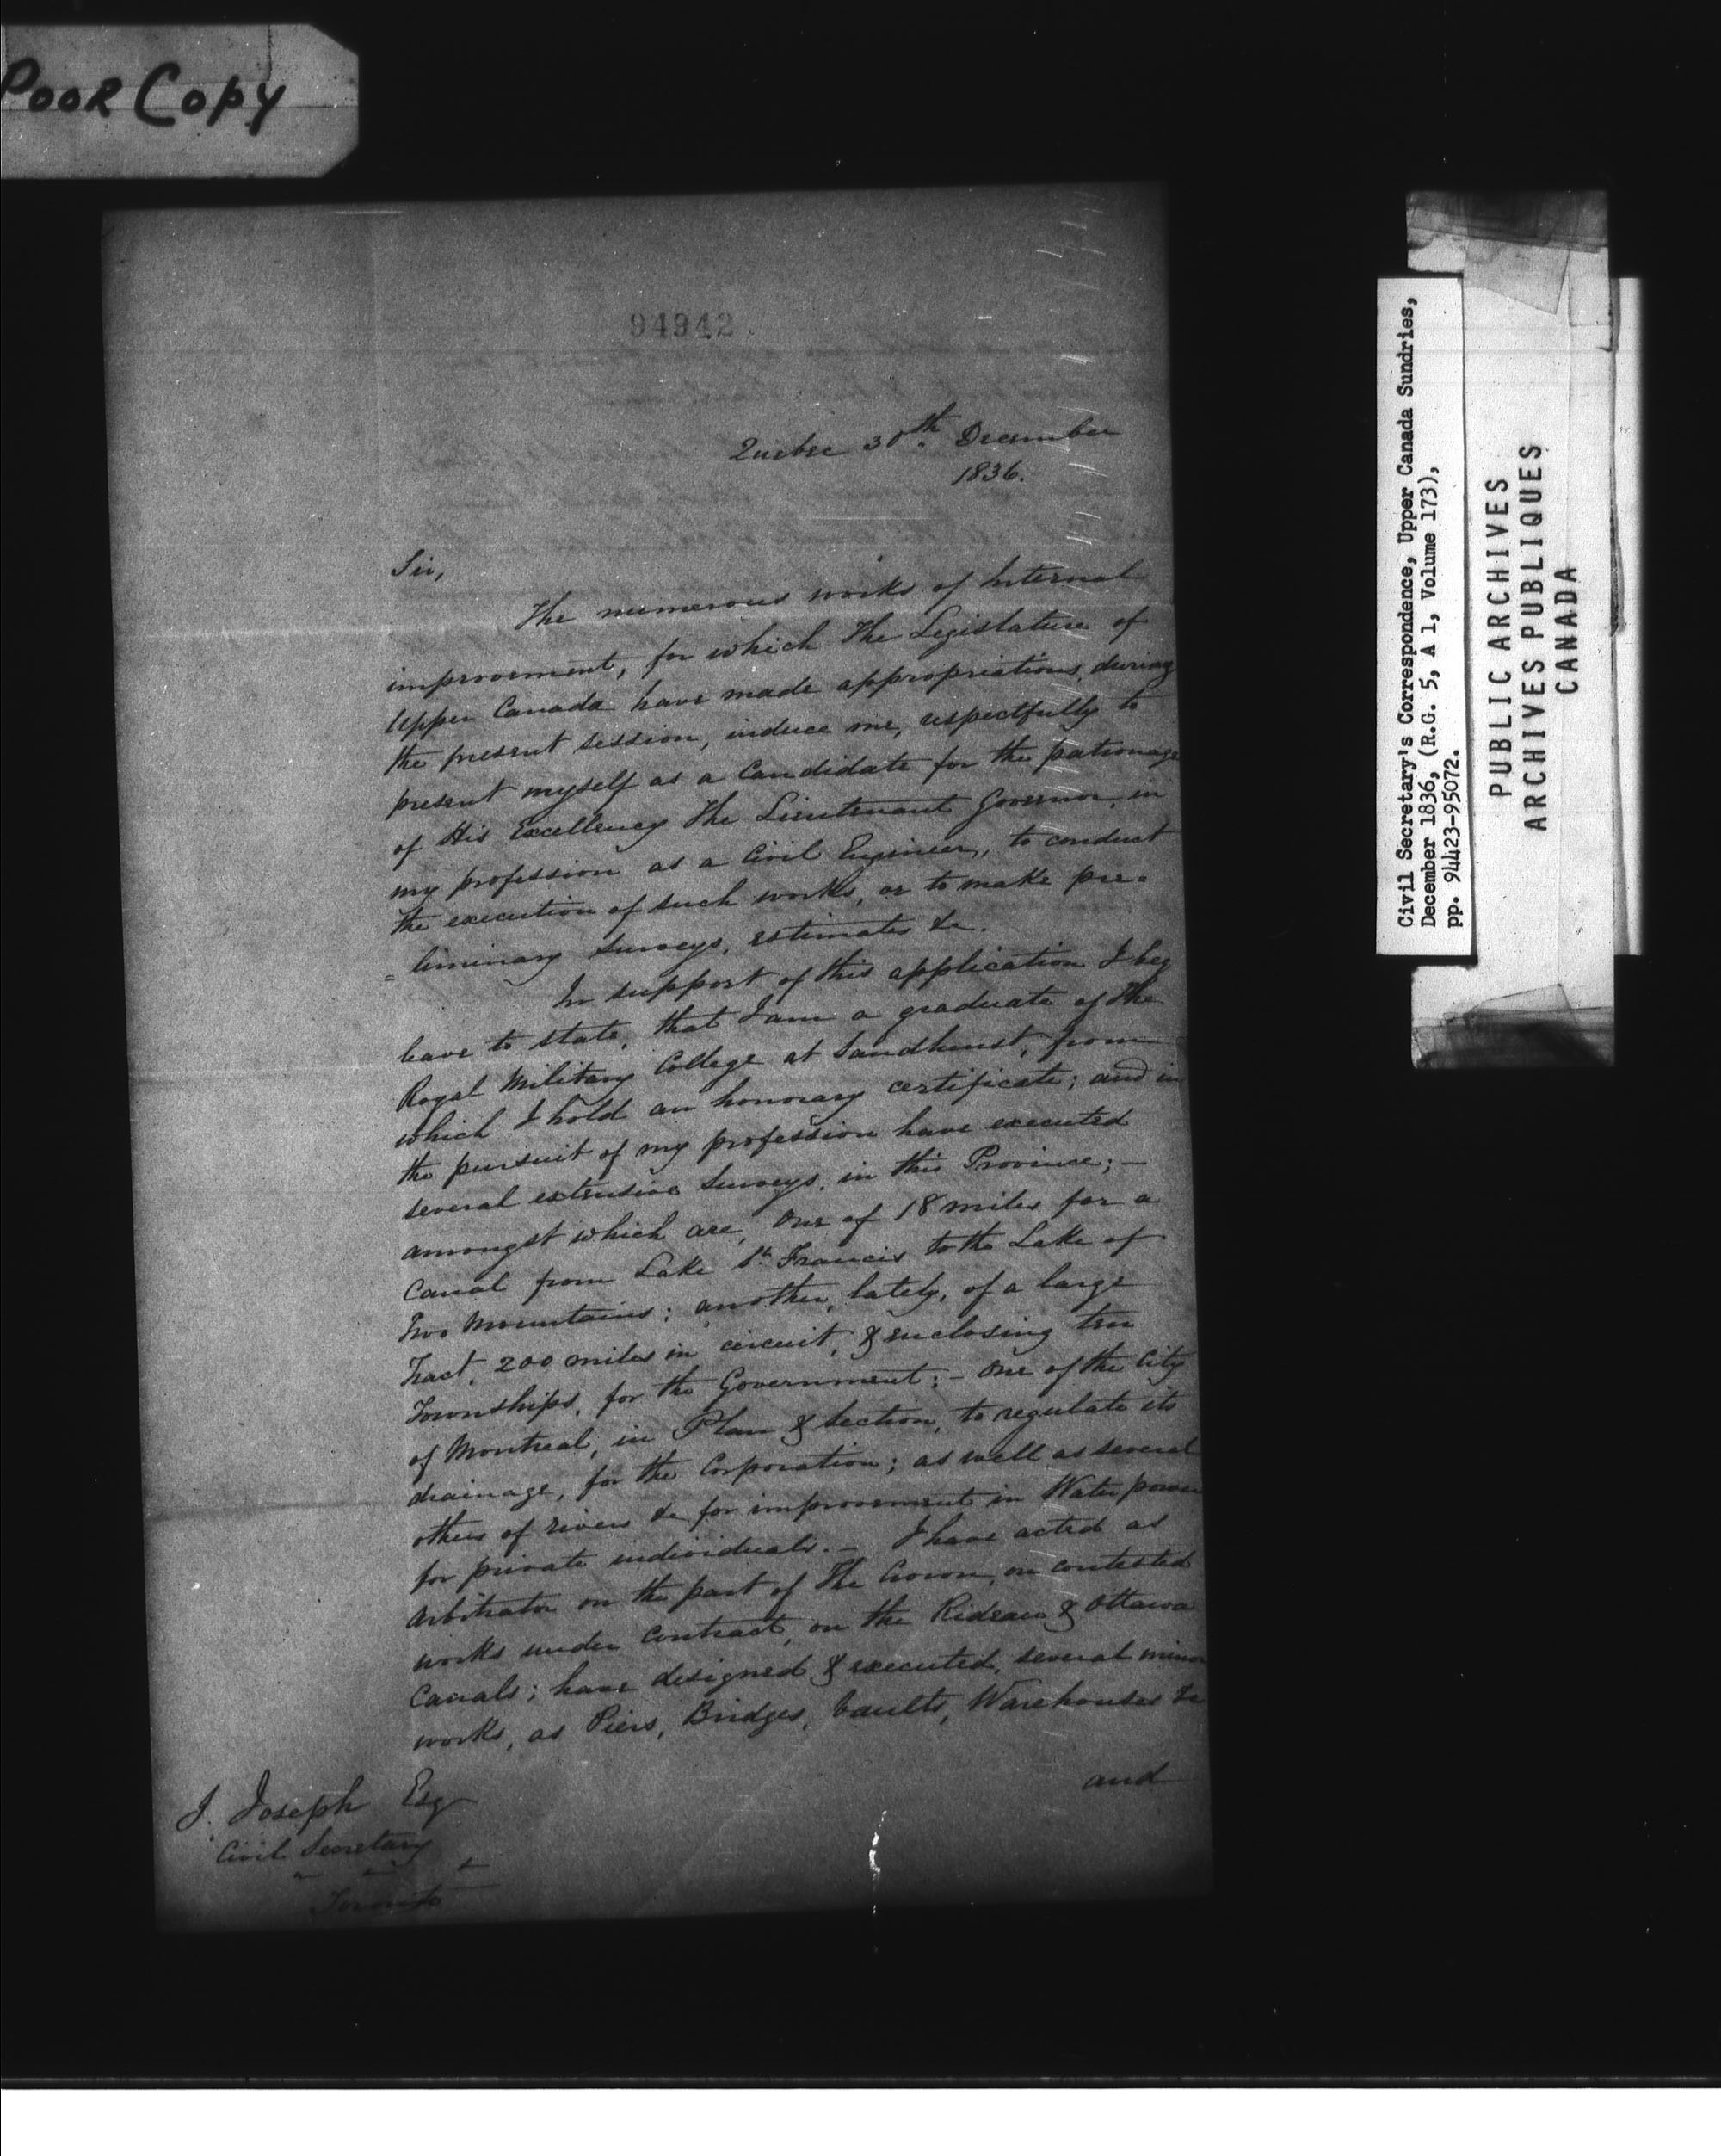 POOR COPY
94942
Quebec 30th December
1836.
Sir,
The numerous works of Internal
improvement, for which The Legislature of
Upper Canada have made appropriations, during
the present session, induce me, respectfully to
present myself as a Candidate for the patronage
of His Excellency The Lieutenant Governor, in
my profession as a Civil Engineer, to conduct
the execution of such works, or to make pre=
=liminary Surveys, estimates &c.
In support of this application I beg
leave to state, that I am a graduate of The
Royal Military College at Sandhurst, from
which I hold an honorary certificate; and in
the pursuit of my profession have executed
several extensive Surveys, in this Province; —
amongst which are, One of 18 miles for a
Canal from Lake St. Francis to the Lake of
Two Mountains; another, lately, of a large
Tract, 200 miles in circuit, & enclosing ten
Townships, for the Government; — One of the City
of Montreal, in Plan & Section, to regulate its
drainage, for the Corporation; as well as several
others of rivers &c for improvement in Water power
for private individuals. — I have acted as
Arbitrator on the part of The Crown, on contested
works under contract, on the Rideau & Ottawa
Canals; have designed & executed, several minor
works, as Piers, Bridges, Vaults, Warehouses &c
and
J. Joseph Esq
Civil Secretary
Toronto
Civil Secretary's Correspondence, Upper Canada Sundries,
December 1836, (R.G. 5, A 1, Volume 173),
pp. 94423-95072.
PUBLIC ARCHIVES
ARCHIVES PUBLIQUES
CANADA